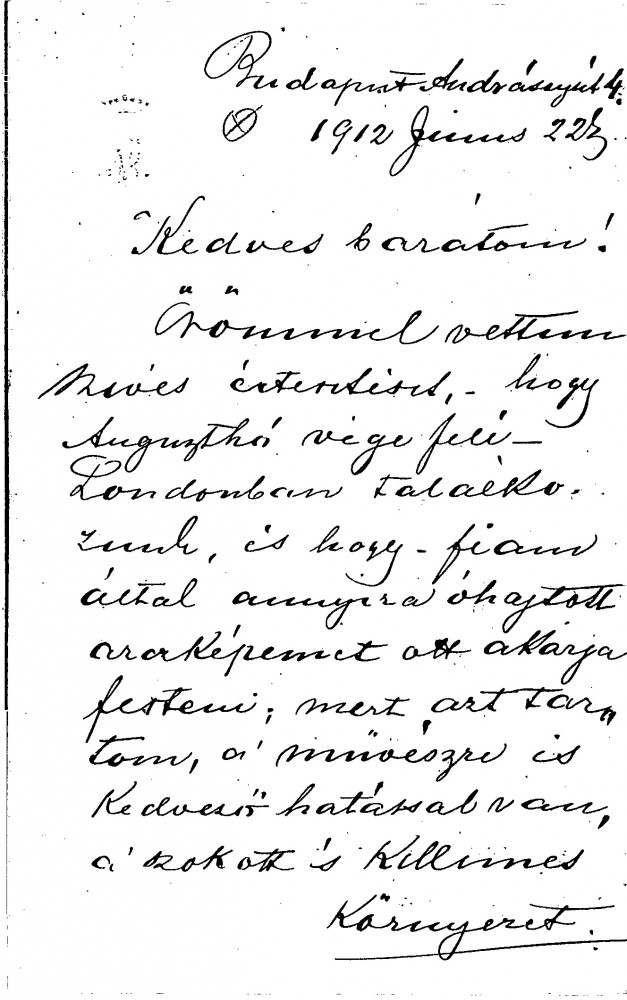 Budapest Andrássyút 4.
1912 Junius 22
Kedves barátom!
Örömmel vettem
szives értesitését, - hogy
Augusthó vége felé -
Londonban találko-
zunk, és hogy - fiam
által annyira óhajtott
arczképemet ott akarja
festeni; mert azt tar„
tom, a' müvészre is
kedvező hatással van,
a' szokott 's kellemes
környezet.